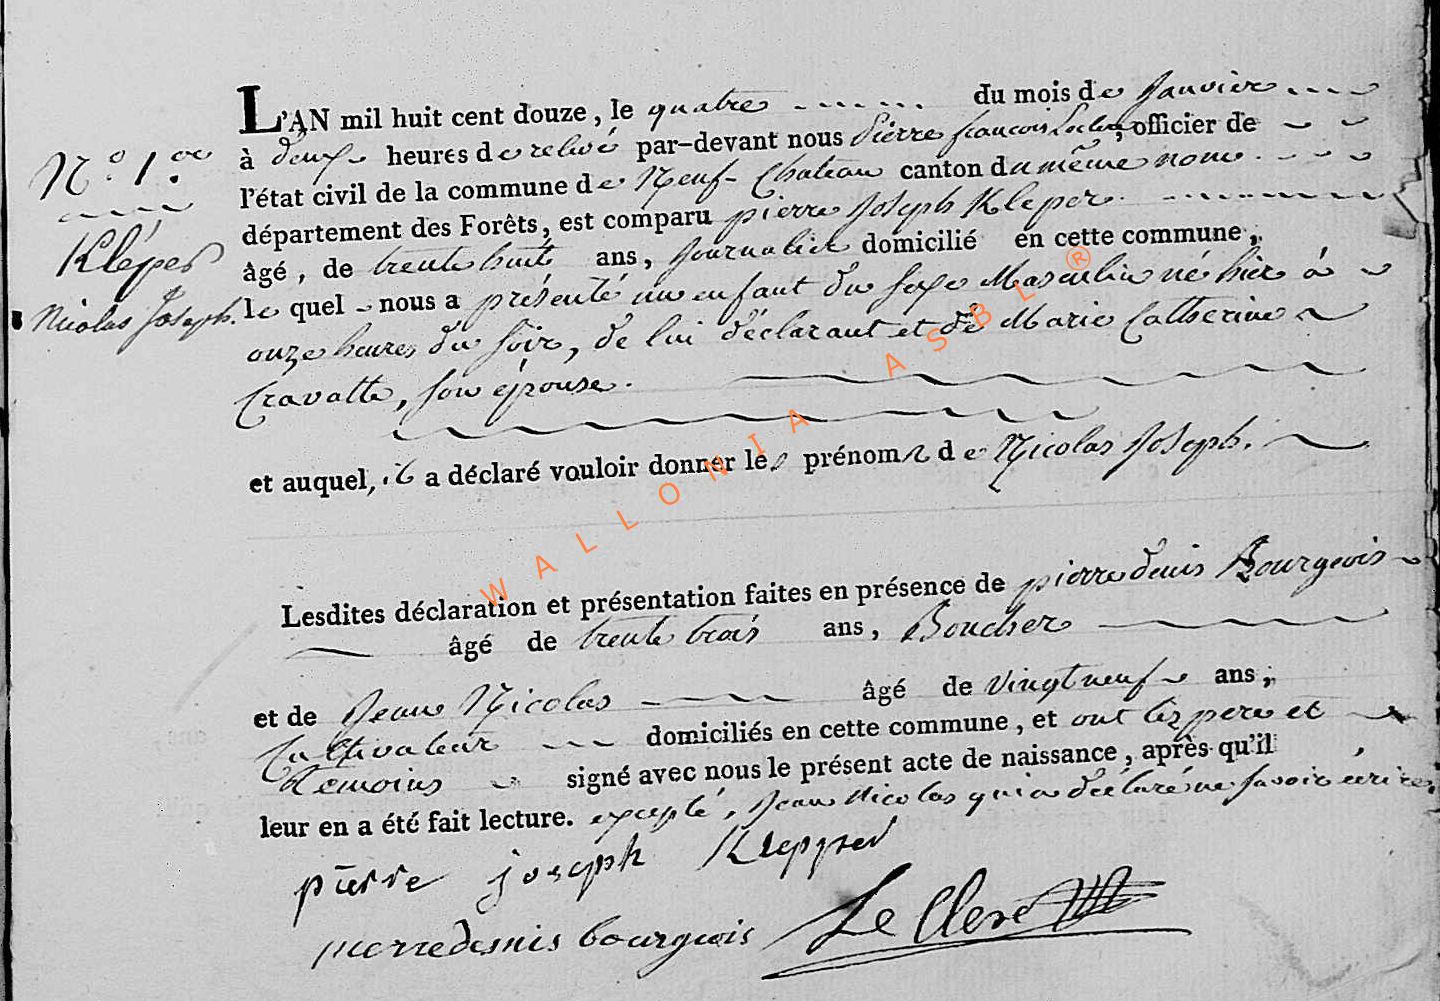 L'AN mil huit cent douze, le quatre du mois de Janvier
à deux heures de relevé par-devant nous Pierre françois Leclerc, officier de
l'état civil de la commune de Neuf-Chateau canton du même nom
département des Forêts, est comparu pierre Joseph Kleper
âgé, de trente huit ans, Journalier domicilié en cette commune,
le quel nous a présenté un enfant du sexe Masculin né hier à
onze heures du soir, de lui déclarant et de Marie Catherine
Cravatte, son épouse.
et auquel, il a déclaré vouloir donner les prénoms de Nicolas Joseph.
Lesdites déclaration et présentation faites en présence de pierre denis Bourgeois
âgé de trente trois ans, Boucher
et de Jean Nicolas âgé de vingt neuf ans,
Cultivateur domiciliés en cette commune, et ont les pere et
témoins signé avec nous le présent acte de naissance, après qu'il
leur en a été fait lecture. excepté, Jean Nicolas qui a déclaré ne savoir écrire.
pierre joseph Klepper
pierre denis bourgeois Le Clerc
N.° 1.er
Kléper
Nicolas Joseph.
WALLONIA ASBL ®